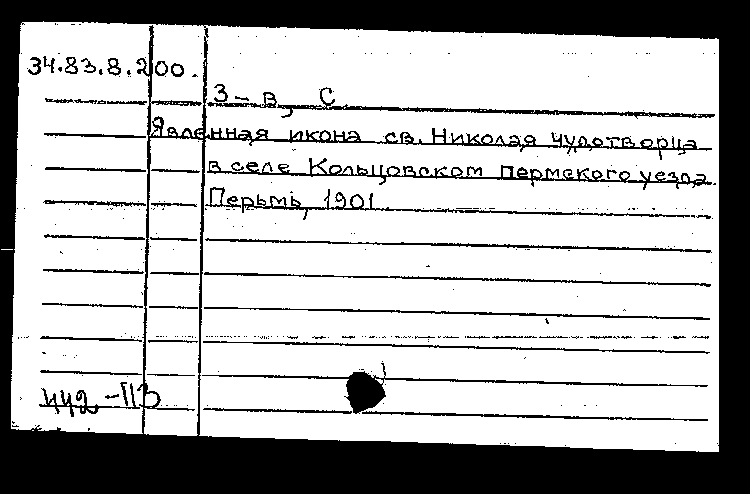 34.83.8.200.
З-в, С
Явленная икона св. Николая чудотворца
в селе Кольцовском Пермского уезда.
Перьмь, 1901
442-ПЗ